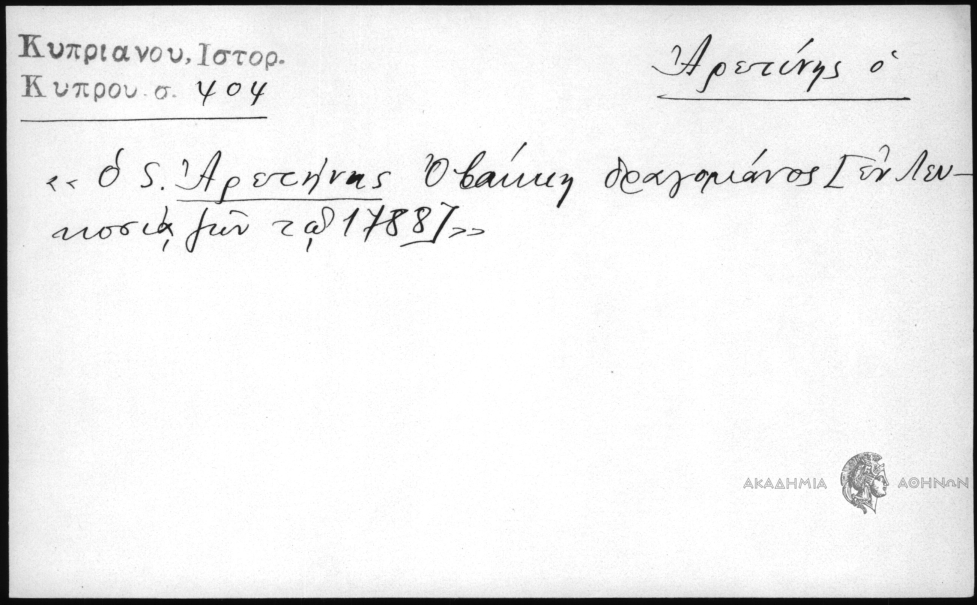 Κυπριανου, Ιστορ.
Κυπρου σ. 404
Ἀρετίνης ὁ
«ὁ S. Ἀρετίνης Ὀβάκκη δραγομάνος [ἐν Λευ-
κοσίᾳ ζῶν τῷ 1788]»
ΑΚΑΔΗΜΙΑ ΑΘΗΝΩΝ